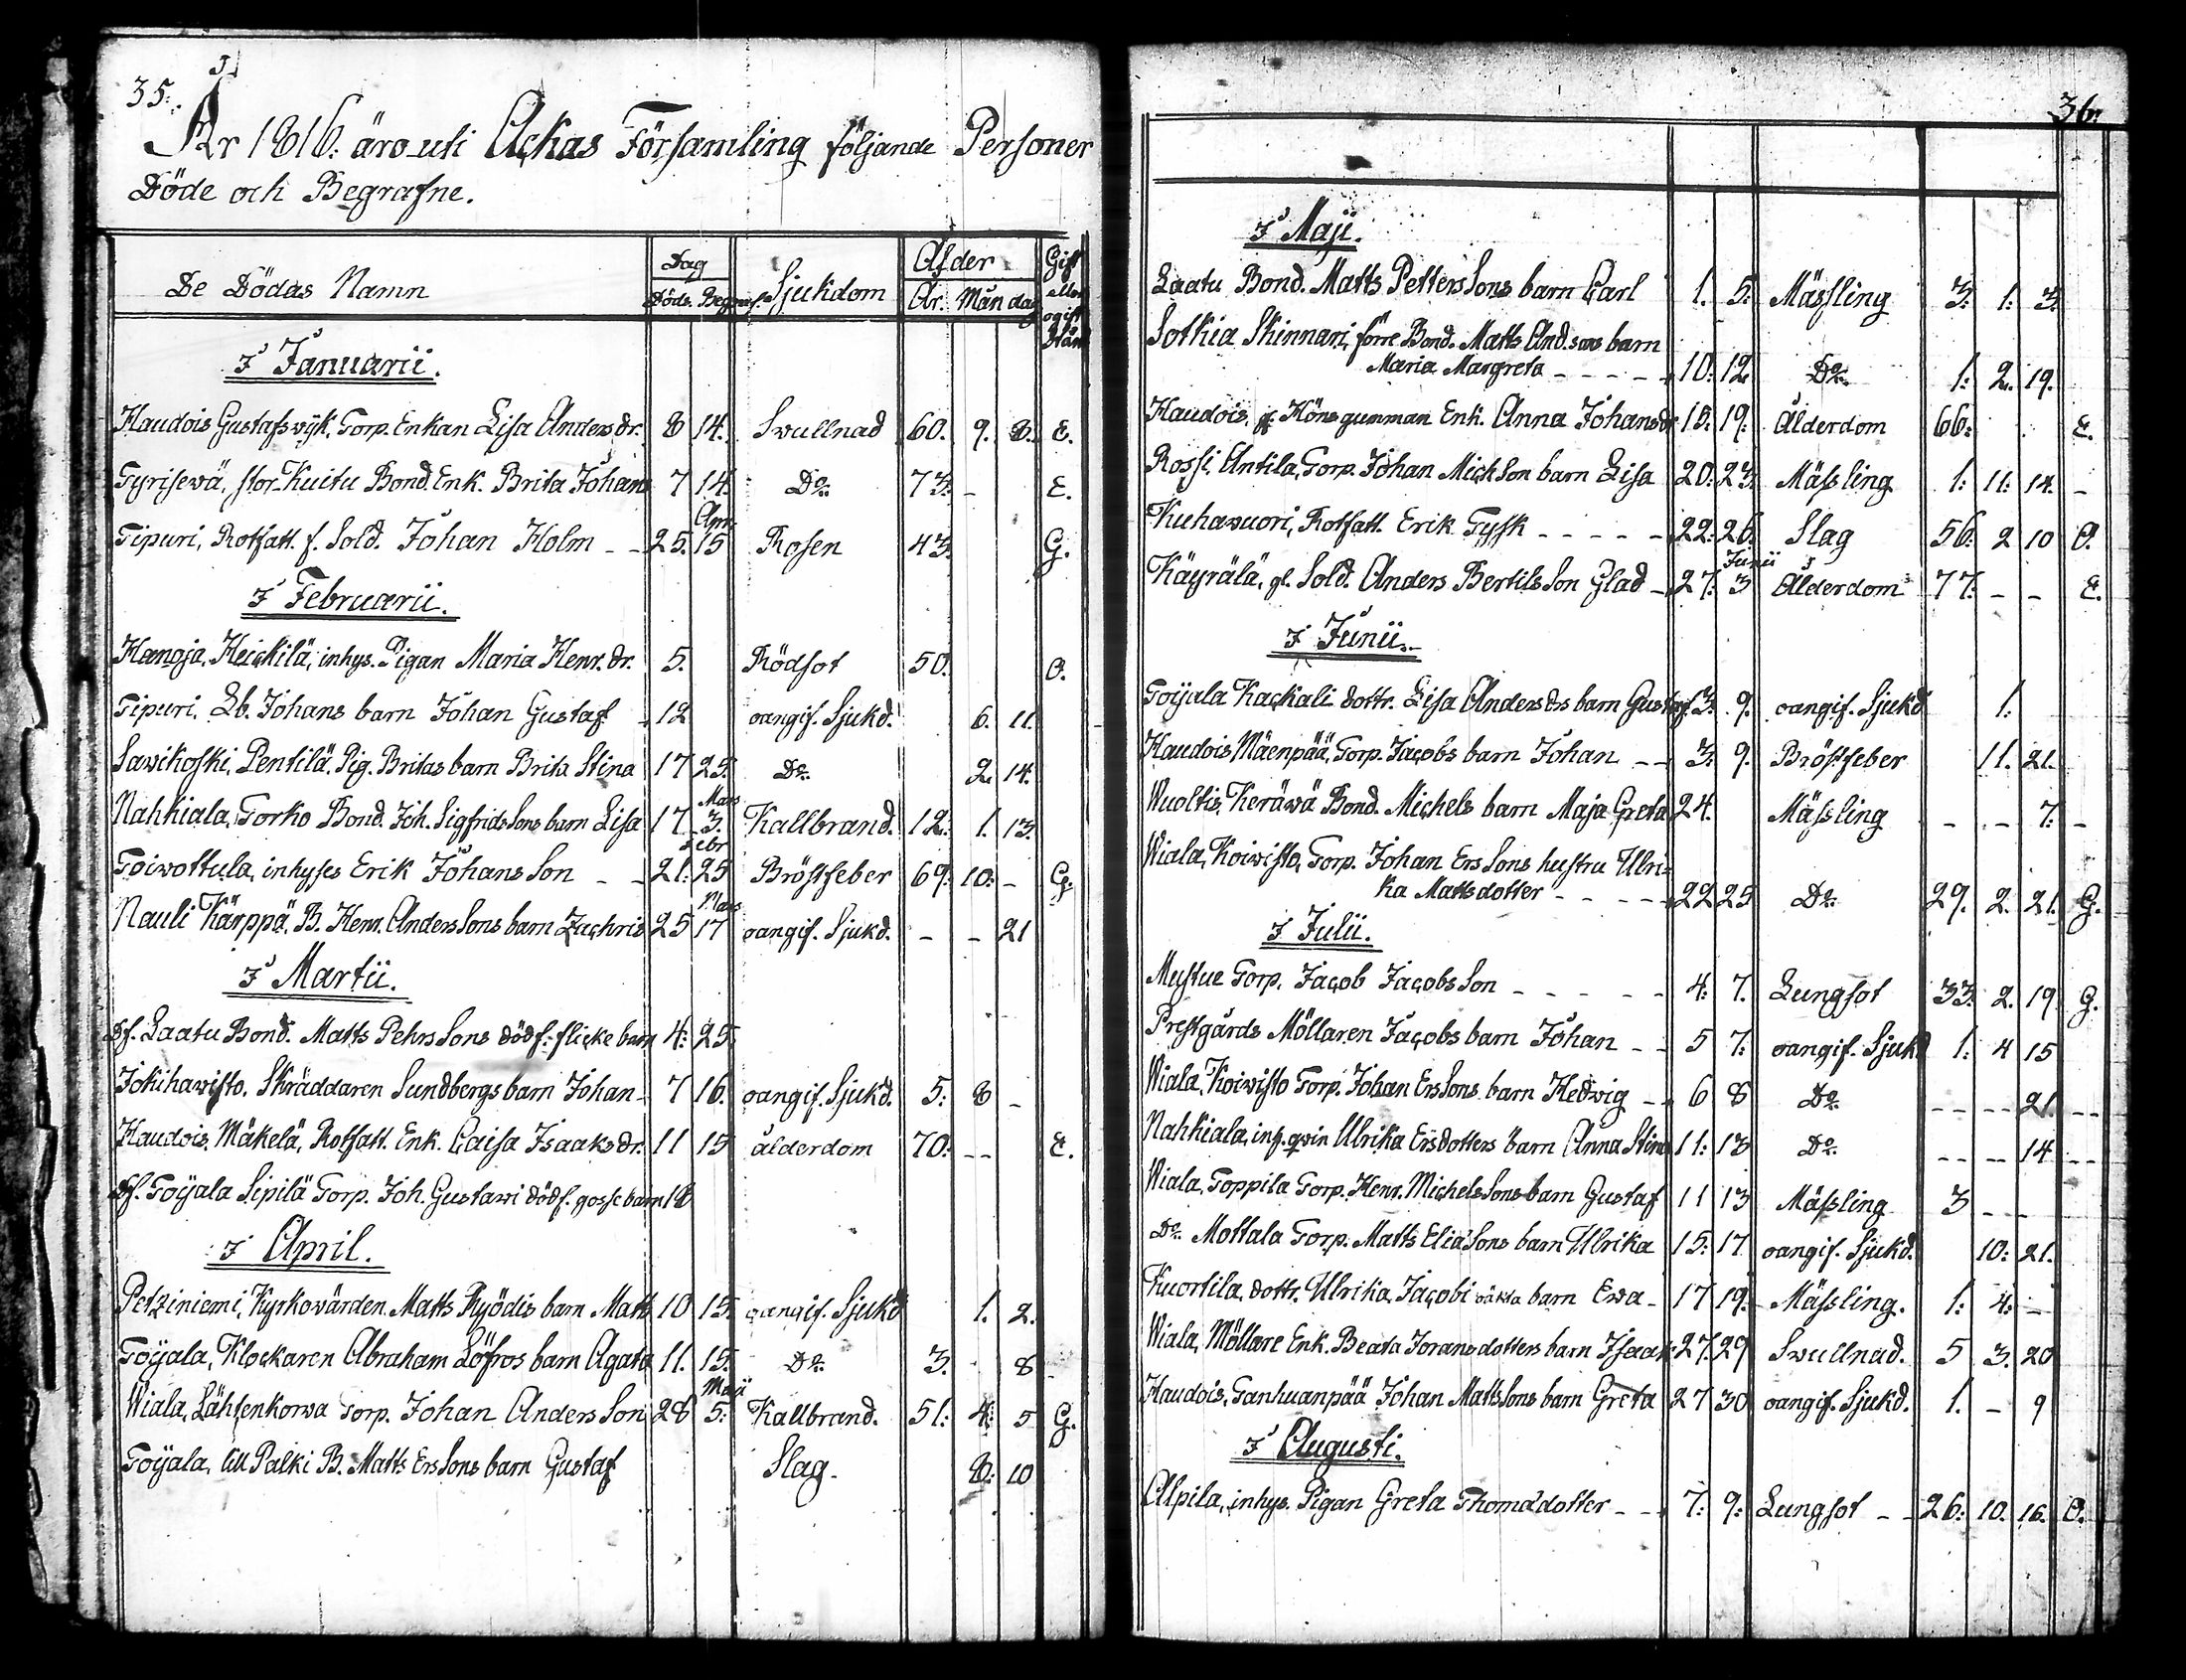 35:
År 1816: äro uti Ackas Församling följande Personer
Döde och Begrafne.
De Dödas Namn Dag Sjukdom Ålder Gift
eller
ogift
Stånd
Döds. Begraf. År. Mån dag
I Januarii.
Haudois Gustafswyk, Torp. Enkan Lisa Anders dr. 8 14. Swullnad 60. 9. 8. E.
Tyrisewä, stor-Kuitu Bond. Enk. Brita Johans 7 14. Do. 73. - E.
Apr.
Tipuri, Rotfatt. f. Sold. Johan Holm - - 25. 15 Rosen 43. G.
I Februarii.
Kangia, Heickilä, inhys. Pigan Maria Henr. dr. 5. Rödsot 50. O.
Tipuri. Lb. Johans barn Johan Gustaf - 12 oangif. Sjukd. 6. 11.
Sawikoski, Pentilä, Pig. Britas barn Brita Stina 17 25. Do. 2. 14.
Mars
Nahkiala, Torko Bond. Joh. Sigfrids Sons barn Lisa 17 3. Kallbrand. 12. 1. 13.
Febr
Toiwottula, inhyses Erik Johans Son - - 21: 25 Bröstfeber 69: 10: - G.
Mars
Nauli Kärppä, B. Henr. Anders Sons barn Zachris 25 17 oangif. Sjukd. - - 21
I Martii.
Df. Laatu Bond. Matts Pehrs Sons dödf: flicke barn 4: 25.
Jokihawisto, Skräddaren Sundbergs barn Johan - 7 16. oangif. Sjukd. 5: 8 -
Haudois, Mäkelä, Rotfatt. Enk. Caisa Isaaks dr. 11 15 ålderdom 70: - - E.
Df. Toijala Sipilä Torp. Joh. Gustawi dödf. gosse barn 18
I April.
Petziniemi, Kyrkowärden Matts Ryödis barn Matts 10 15. oangif. Sjukd 1. 2.
Toijala, Klockaren Abraham Löfros barn Agata 11. 15. Do. 3. 8
Maji
Wiala, Lähtenkorwa Torp. Johan Anders Son 28 5: Kallbrand. 51: 4: 5 G.
Toijala, All Palki B. Matts Ers Sons barn Gustaf Slag. 8: 10
36:
I Maji.
Laatu Bond. Matts Petters Sons barn Carl 1. 5: Mässling 3: 1: 3.
Sotkia Skinnari, förre Bond. Matts And. sons barn
Maria Margreta - - - - - 10: 12. Do. 1: 2. 19.
Haudois, Höns gumman Enk. Anna Johans dr 15: 19: Ålderdom 66: E.
Rossi, Antila, Torp. Johan Mich Son barn Lisa 20: 23: Mässling 1: 11: 14. -
Kuhawuori, Rotfatt. Erik Tysk - - - - - 22: 26. Slag 56: 2 10 O.
Junii
Käyrälä, gl. Sold. Anders Bertils Son Glad - 27: 3 Ålderdom 77: - - E.
I Junii.
Toijala Kackali dottr. Lisa Anders drs barn Gustaf. 3. 9. oangif. Sjukd 1.
Haudois Mäenpää, Torp. Jacobs barn Johan - - 3: 9. Bröstfeber 11. 21.
Wuoltis, Keräwä Bond. Michels barn Maja Greta 24. Mässling - - 7: -
Wiala, Koiwisto, Torp. Johan Ers Sons hustru Ulri-
ka Mattsdotter - - - - - 22 25 Do. 29. 2. 21. G.
I Julii.
Mustue Torp. Jacob Jacobs Son - - - - - 4: 7. Lungsot 33. 2. 19 G.
Prestgårds Möllaren Jacobs barn Johan - - 5 7: oangif. Sjukd 1: 4 15
Wiala, Koiwisto Torp. Johan Ers Sons barn Hedwig - - 6 8 Do. - - - - 21. - -
Nahkiala, inh. qwin Ulrika Ersdotters barn Anna Stina 11: 13 Do. - - - - 14 - -
Wiala, Toppila Torp. Henr. Michels Sons barn Gustaf 11 13 Mässling 3 - -
Do. Mottala Torp. Matts Elia Sons barn Ulrika 15: 17. oangif. Sjukd. 10: 21.
Kuortila, dottr. Ulrika Jacobi oäkta barn Ewa - 17 19. Mässling. 1: 4: -
Wiala, Möllare Enk. Beata Joransdotters barn Isaak 27. 29 Swullnad. 5 3. 20
Haudois, Tanhuanpää Johan Matts Sons barn Greta 27 30 oangif. Sjukd. 1. - 9
I Augusti.
Alpila, inhys. Pigan Greta Thomädotter - - - 7: 9: Lungsot - - 26: 10. 16. O.